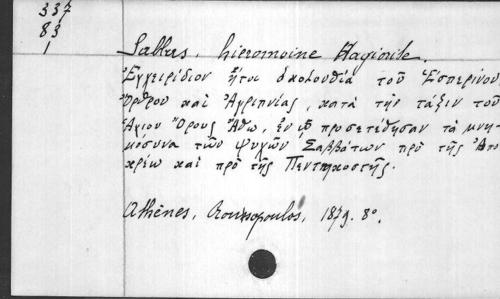 337
83
1
Sabbas, hieromoine Hagiorite.
Ἐγχειρίδιον ἤτοι ἀκολουθία τοῦ Ἑσπερινοῦ,
Ὄρθρου καὶ Ἀγρυπνίας, κατὰ τὴν τάξιν τοῦ
Ἁγίου Ὄρους Ἄθω, ἐν ᾧ προσετέθησαν τὰ μνη-
μόσυνα τῶν ψυχῶν Σαββάτων πρὸ τῆς Ἀπο
κρέω καὶ πρὸ τῆς Πεντηκοστῆς.
Athènes, 1879. 8º.